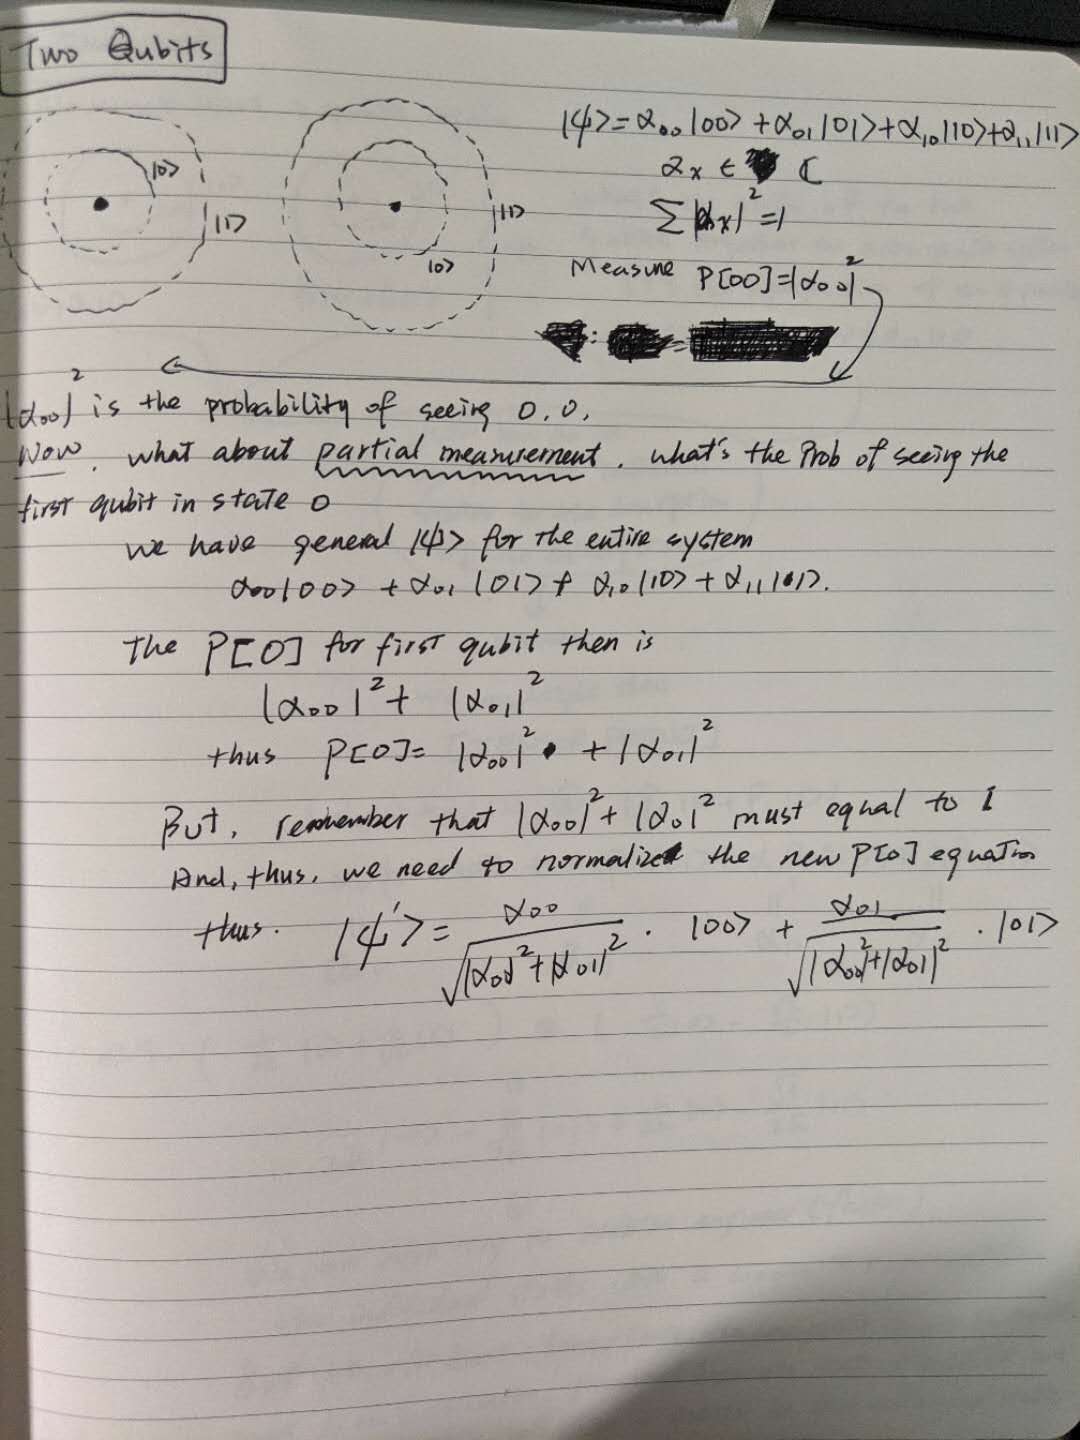 Two Qubits
|0>
|1>
|1>
|0>
|ψ>=α₀₀|00>+α₀₁|01>+α₁₀|10>+α₁₁|11>
αx ∈ ℂ
Σ|αx|²=1
Measure P[00]=|α₀₀|²
|α₀₀|² is the probability of seeing 0,0,
Now, what about partial measurement. what's the Prob of seeing the
first qubit in state 0
we have general |ψ> for the entire system
α₀₀|00> + α₀₁|01> + α₁₀|10> + α₁₁|11>.
The P[0] for first qubit then is
|α₀₀|²+ |α₀₁|²
thus P[0]= |α₀₀|² + |α₀₁|²
But, remember that |α₀₀|²+ |α₀₁|² must equal to 1
And, thus, we need to normalize the new P[0] equation
thus. |ψ'> = α₀₀/√(|α₀₀|²+|α₀₁|²) · |00> + α₀₁/√(|α₀₀|²+|α₀₁|²) · |01>